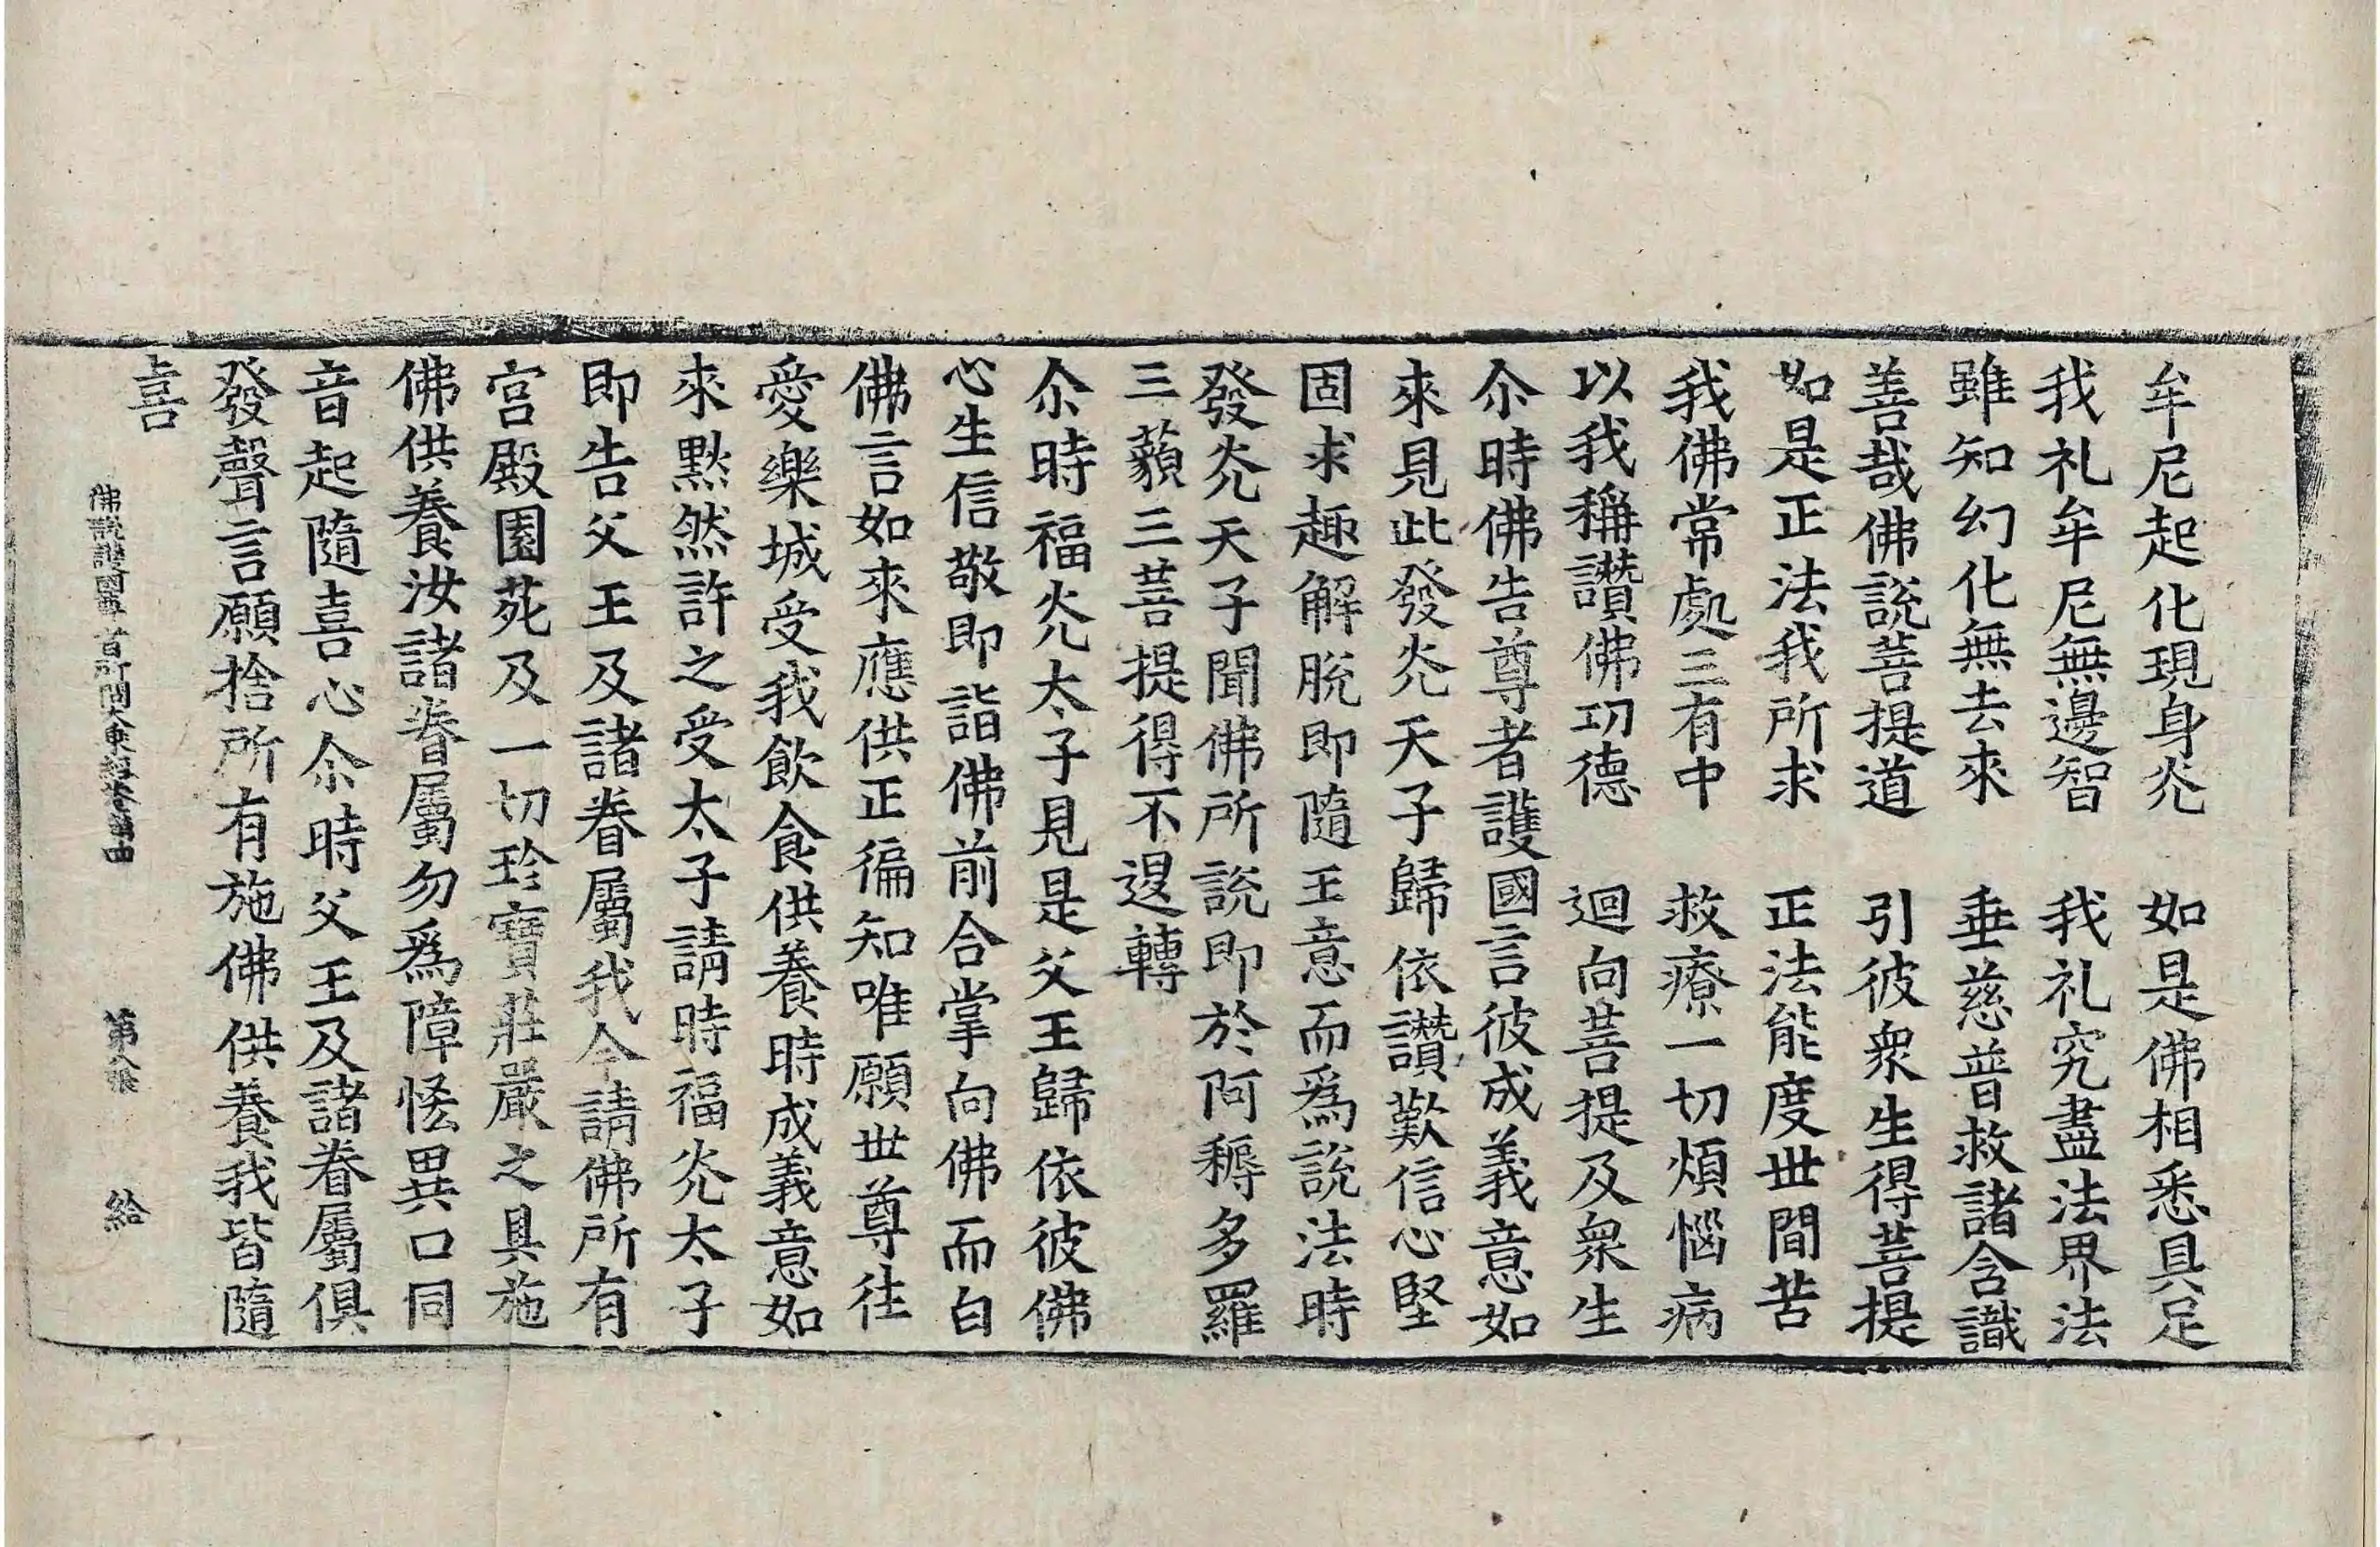 牟尼起化現身光　如是佛相悉具足
我礼牟尼無邊智　我礼究盡法界法
雖知幻化無去來　垂慈普救諸含識
善哉佛說菩提道　引彼衆生得菩提
如是正法我所求　正法能度世間苦
我佛常處三有中　救療一切煩惱病
以我稱讚佛功德　迴向菩提及衆生
尒時佛告尊者護國言彼成義意如
來見此發光天子歸依讚歎信心堅
固求趣解脫即隨王意而爲說法時
發光天子聞佛所說即於阿耨多羅
三藐三菩提得不退轉
尒時福光太子見是父王歸依彼佛
心生信敬即詣佛前合掌向佛而白
佛言如來應供正徧知唯願世尊往
愛樂城受我飲食供養時成義意如
來默然許之受太子請時福光太子
即告父王及諸眷屬我今請佛所有
宮殿園苑及一切珍寶莊嚴之具施
佛供養汝諸眷屬勿爲障恡異口同
音起隨喜心尒時父王及諸眷屬俱
發聲言願捨所有施佛供養我皆隨
喜
佛說護國尊者所問大乘經卷第四　第八張　給